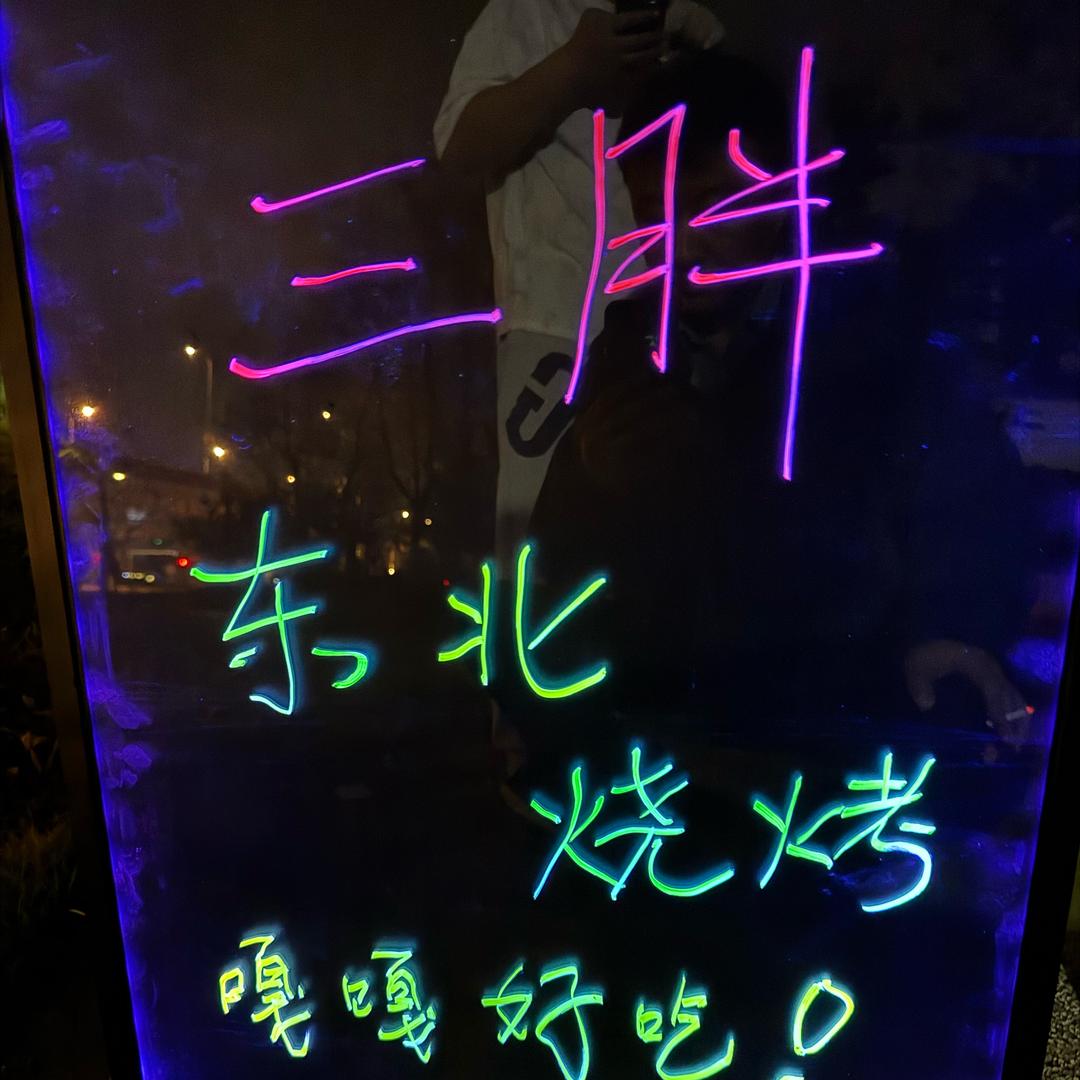 三胖
东北
烧烤
嘎嘎好吃!